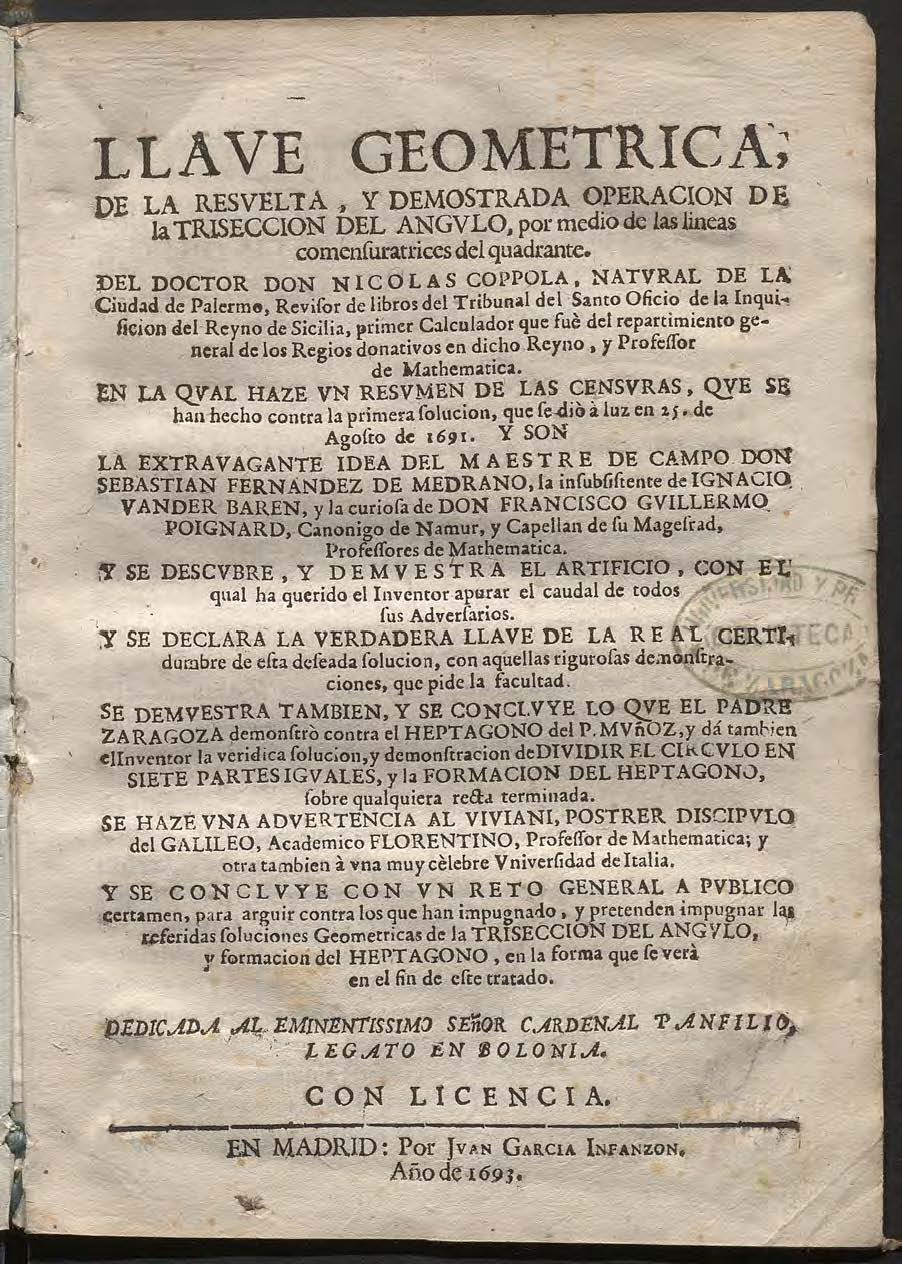 LLAVE GEOMETRICA,
DE LA RESVELTA, Y DEMOSTRADA OPERACION DE
la TRISECCION DEL ANGVLO, por medio de las lineas
comenſuratrices del quadrante.
DEL DOCTOR DON NICOLAS COPPOLA, NATVRAL DE LA
Ciudad de Palermo, Reviſor de libros del Tribunal del Santo Oficio de la Inqui-
ſicion del Reyno de Sicilia, primer Calculador que fuè del repartimiento ge-
neral de los Regios donativos en dicho Reyno, y Profeſſor
de Mathematica.
EN LA QVAL HAZE VN RESVMEN DE LAS CENSVRAS, QVE SE
han hecho contra la primera ſolucion, que ſe diò à luz en 25. de
Agoſto de 1691. Y SON
LA EXTRAVAGANTE IDEA DEL MAESTRE DE CAMPO DON
SEBASTIAN FERNANDEZ DE MEDRANO, la inſubſiſtente de IGNACIO
VANDER BAREN, y la curioſa de DON FRANCISCO GVILLERMO
POIGNARD, Canonigo de Namur, y Capellan de ſu Mageſtad,
Profeſſores de Mathematica.
Y SE DESCVBRE, Y DEMVESTRA EL ARTIFICIO, CON EL
qual ha querido el Inventor apurar el caudal de todos
ſus Adverſarios.
Y SE DECLARA LA VERDADERA LLAVE DE LA REAL CERTI-
dumbre de eſta deſeada ſolucion, con aquellas riguroſas demonſtra-
ciones, que pide la facultad.
SE DEMVESTRA TAMBIEN, Y SE CONCLVYE LO QVE EL PADRE
ZARAGOZA demonſtrò contra el HEPTAGONO del P. MVñOZ, y dá tambien
el Inventor la veridica ſolucion, y demonſtracion de DIVIDIR EL CIRCVLO EN
SIETE PARTES IGVALES, y la FORMACION DEL HEPTAGONO,
ſobre qualquiera recta terminada.
SE HAZE VNA ADVERTENCIA AL VIVIANI, POSTRER DISCIPVLO
del GALILEO, Academico FLORENTINO, Profeſſor de Mathematica; y
otra tambien à vna muy cèlebre Vniverſidad de Italia.
Y SE CONCLVYE CON VN RETO GENERAL A PVBLICO
certamen, para arguir contra los que han impugnado, y pretenden impugnar las
referidas ſoluciones Geometricas de la TRISECCION DEL ANGVLO,
y formacion del HEPTAGONO, en la forma que ſe verà
en el fin de eſte tratado.
DEDICADA AL EMINENTISSIMO SEñOR CARDENAL PANFILIO,
LEGATO EN BOLONIA.
CON LICENCIA.
EN MADRID: Por JVAN GARCIA INFANZON.
Año de 1693.